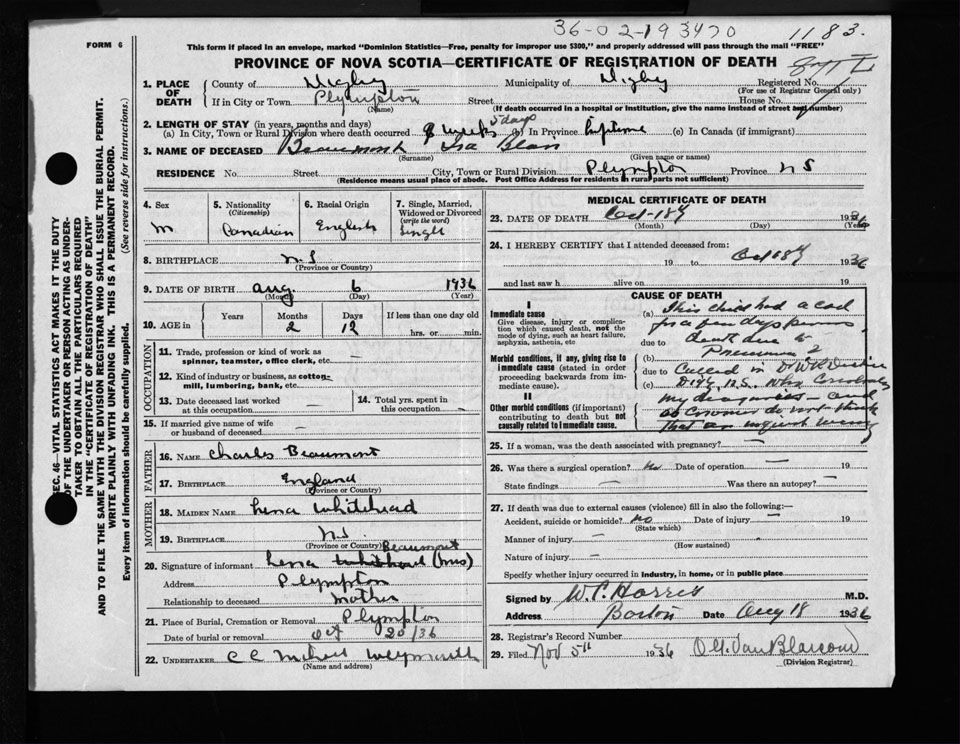 36-02-193470
1183.
FORM 6
This form if placed in an envelope, marked "Dominion Statistics—Free, penalty for improper use $300," and properly addressed will pass through the mail "FREE"
PROVINCE OF NOVA SCOTIA—CERTIFICATE OF REGISTRATION OF DEATH
1. PLACE OF DEATH County of Digby Municipality of Digby Registered No.
(For use of Registrar General only)
If in City or Town Plympton Street House No.
(Name) (If death occurred in a hospital or institution, give the name instead of street and number)
2. LENGTH OF STAY (in years, months and days)
(a) In City, Town or Rural Division where death occurred 8 weeks 5 days (b) In Province lifetime (c) In Canada (if immigrant)
3. NAME OF DECEASED Beaumont Ira
(Surname) (Given name or names)
RESIDENCE No. Street City, Town or Rural Division Plympton Province NS
(Residence means usual place of abode. Post Office Address for residents in rural parts not sufficient)
4. Sex M
5. Nationality (Citizenship) Canadian
6. Racial Origin English
7. Single, Married, Widowed or Divorced (write the word) Single
8. BIRTHPLACE N.S
(Province or Country)
9. DATE OF BIRTH Aug. 6 1936
(Month) (Day) (Year)
10. AGE in Years Months 2 Days 12 If less than one day old hrs. or min.
OCCUPATION
11. Trade, profession or kind of work as spinner, teamster, office clerk, etc.
12. Kind of industry or business, as cotton-mill, lumbering, bank, etc.
13. Date deceased last worked at this occupation
14. Total yrs. spent in this occupation
15. If married give name of wife or husband of deceased
FATHER
16. NAME Charles Beaumont
17. BIRTHPLACE England
(Province or Country)
MOTHER
18. MAIDEN NAME Lena Whitehead
19. BIRTHPLACE N.S.
(Province or Country)
20. Signature of informant Lena Beaumont (Mrs)
Address Plympton
Relationship to deceased Mother
21. Place of Burial, Cremation or Removal Plympton
Date of burial or removal Oct 20/36
22. UNDERTAKER C C Weymouth
(Name and address)
MEDICAL CERTIFICATE OF DEATH
23. DATE OF DEATH Oct-18th 1936
(Month) (Day) (Year)
24. I HEREBY CERTIFY that I attended deceased from:
19 to Oct 18th 1936
and last saw h alive on 19
CAUSE OF DEATH
I
Immediate cause
Give disease, injury or complication which caused death, not the mode of dying, such as heart failure, asphyxia, asthenia, etc
Morbid conditions, if any, giving rise to immediate cause (stated in order proceeding backwards from immediate cause).
II
Other morbid conditions (if important) contributing to death but not causally related to immediate cause.
(a) This child had a cold
for a few days
due to death due to
(b) Pneumonia
due to Called in Dr
(c) Digby N.S. Who
my diagnosis and
as Coroner do not think
that an inquest
25. If a woman, was the death associated with pregnancy?
26. Was there a surgical operation? No Date of operation 19
State findings Was there an autopsy?
27. If death was due to external causes (violence) fill in also the following:—
Accident, suicide or homicide? No Date of injury 19
(State which)
Manner of injury
(How sustained)
Nature of injury
Specify whether injury occurred in industry, in home, or in public place
Signed by M.D.
Address Date Aug 18 1936
28. Registrar's Record Number
29. Filed Nov 5th 1936 Van Blarcom
(Division Registrar)
SEC. 46—VITAL STATISTICS ACT MAKES IT THE DUTY
OF THE UNDERTAKER OR PERSON ACTING AS UNDER-
TAKER TO OBTAIN ALL THE PARTICULARS REQUIRED
IN THE "CERTIFICATE OF REGISTRATION OF DEATH"
AND TO FILE THE SAME WITH THE DIVISION REGISTRAR WHO SHALL ISSUE THE BURIAL PERMIT.
WRITE PLAINLY WITH UNFADING INK. THIS IS A PERMANENT RECORD.
Every item of information should be carefully supplied. (See reverse side for instructions.)